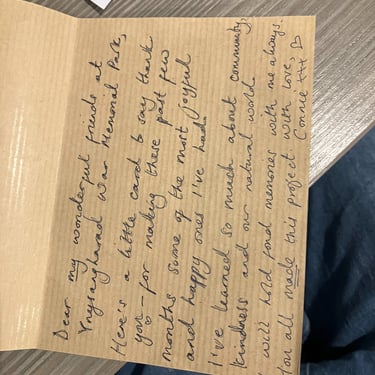 Dear my wonderful friends at
Ynysangharad War Memorial Park,
Here's a little card to say thank
you - for making these past few
months some of the most joyful
and happy ones I've had.
I've learned so much about community,
kindness and our natural world
I will hold fond memories with me always.
You all made this project with love,
Connie xxx ♡